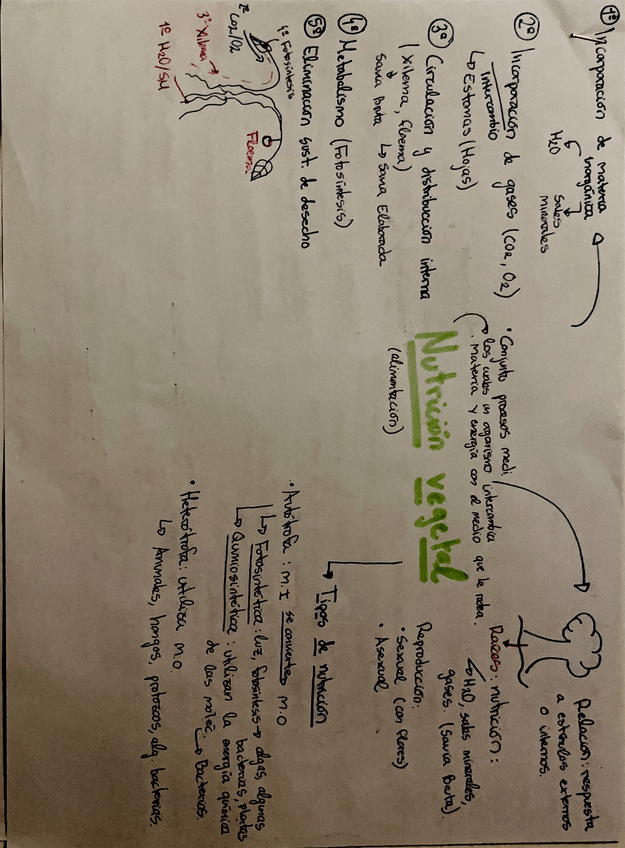 Nutrición vegetal
(alimentación)
• Conjunto procesos medi.
los cuales un organismo intercambia
materia y energía con el medio que le rodea.
1º Incorporación de materia
inorgánica
H2O
Sales
minerales
2º Incorporación de gases (CO2, O2)
Intercambio
↳ Estomas (Hojas)
3º Circulación y distribución interna
(xilema, floema)
Savia Bruta ↳ Savia Elaborada
4º Metabolismo (Fotosíntesis)
5º Eliminación sust. de desecho
4º Fotosíntesis
2º CO2/O2
3º Xilema
1º H2O/SM
Floema
Relación: respuesta
a estímulos externos
o internos.
Raíces: nutrición:
H2O, sales minerales,
gases. (Savia Bruta).
Reproducción:
• Sexual (con flores)
• Asexual
Tipos de nutrición
• Autótrofa: M.I se convierte M.O
↳ Fotosintética: luz, fotosíntesis → algas, algunas
bacterias, plantas
↳ Quimiosintética: utilizan la energía química
de las moléc.
↳ Bacterias.
• Heterótrofa: utiliza M.O.
↳ Animales, hongos, protozoos, alg. bacterias.